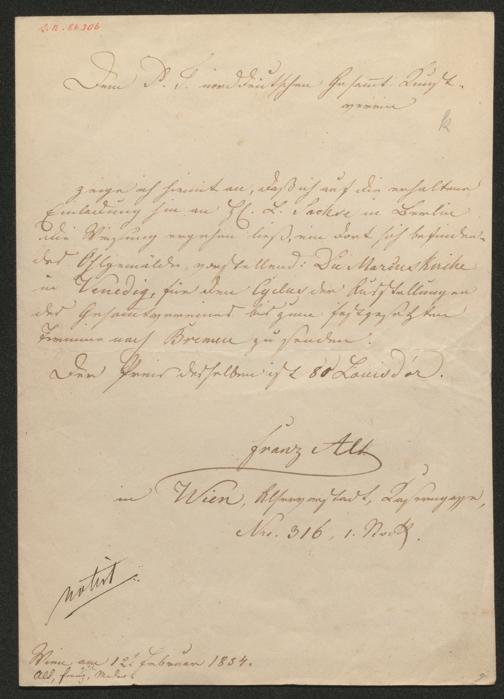 I.N. 86306
Dem P. T. norddeutschen Gesammt-Kunst-
verein
zeige ich hiemit an, daß ich auf die erhaltene
Einladung hin an H. L. Sachse in Berlin
die Weisung ergehen ließ, ein dort sich befinden-
des Ölgemälde, vorstellend: Die Marcuskirche
in Venedig, für den Cyclus der Ausstellungen
des Gesammtvereines bis zum festgesetzten
Termine nach Bremen zu senden.
Der Preis desselben ist 80 Louisd'or.
Franz Alt
in Wien, Alservorstadt, Kaserngasse,
Nro. 316, 1. Stock.
notirt
Wien, am 12. Februar 1854.
Alt, Franz, Maler